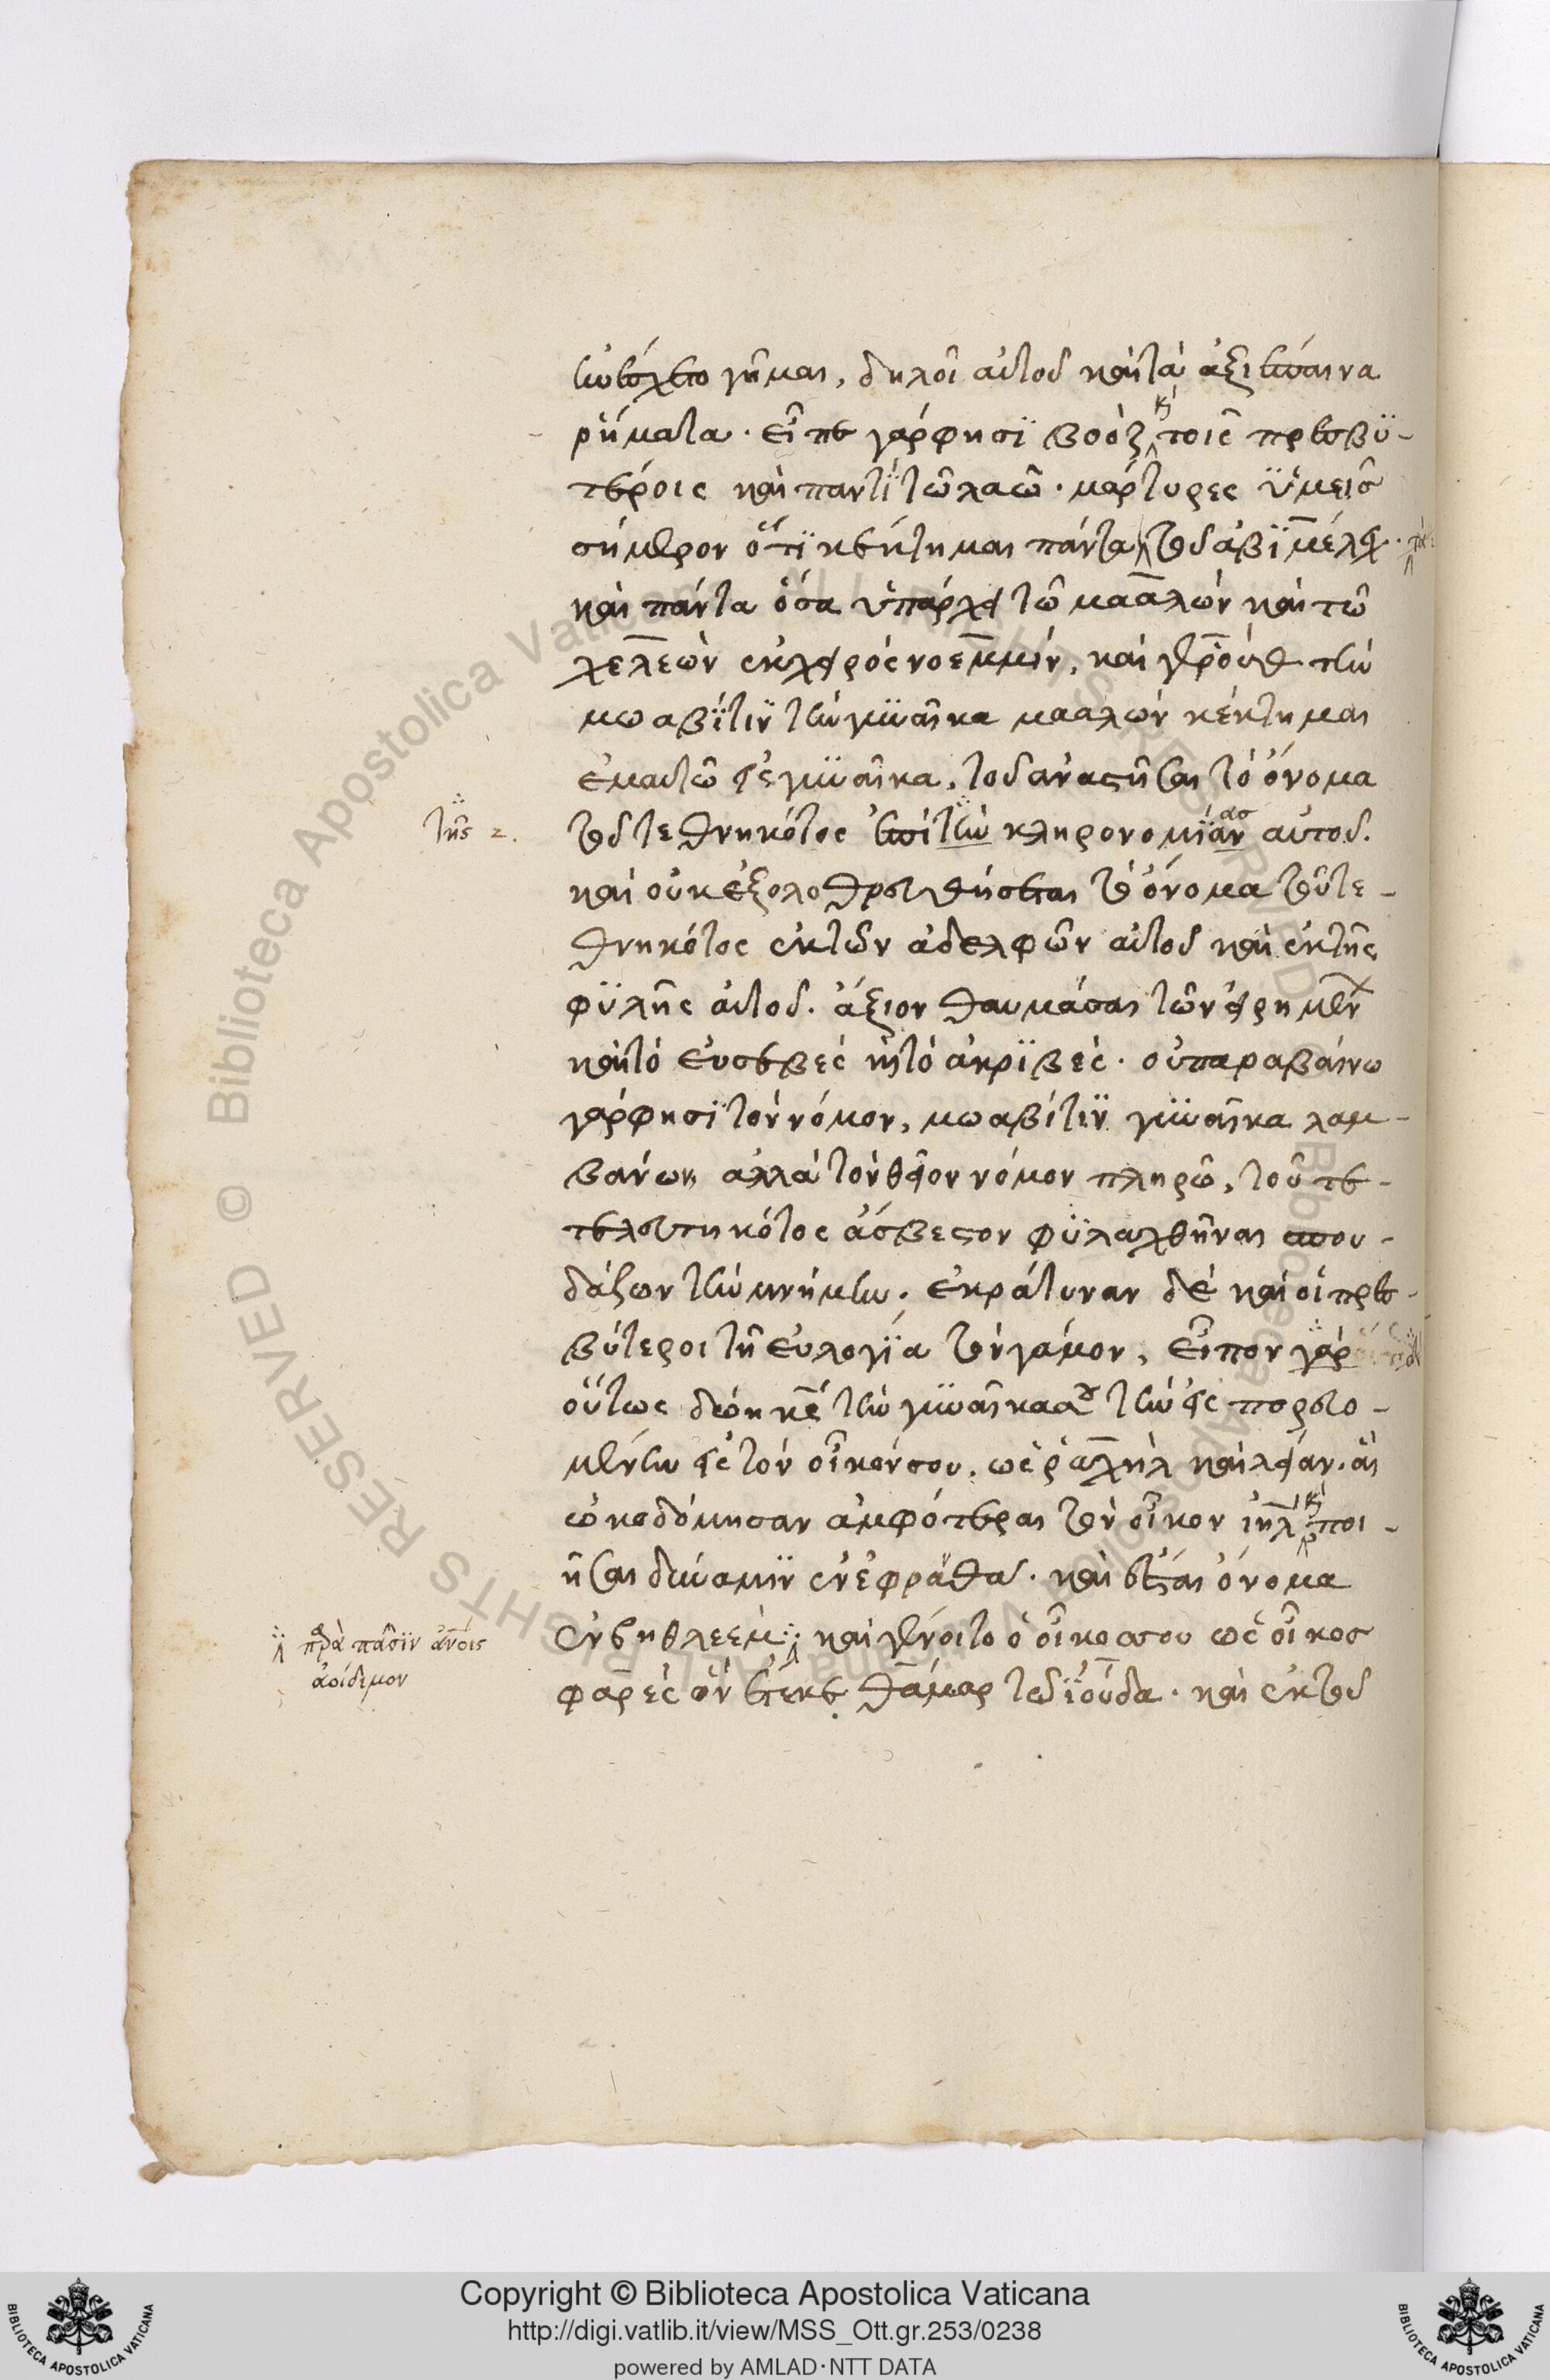 ἠνέσχετο γῆμαι, δηλοῖ αὐτοῦ καὶ τὰ ἀξιέπαινα
ῥήματα. εἶπε γάρ φησϊ βοὸζ καὶ τοῖς πρεσβϋ-
τέροις καὶ παντὶ τῶ λαῶ. μάρτυρες ὑμεῖς
σήμερον ὅτϊ κέκτημαι πάντα τὰ τοῦ ἀβϊμέλεχ.
καὶ πάντα ὅσα ὑπάρχει τῶ μααλὼν καὶ τῶ
χελεὼν ἐκ χειρὸς νοεμμὶν, καί γε ῥοὺθ τὴν
μωαβΐτιν τὴν γυναῖκα μααλὼν κέκτημαι
ἐμαυτῶ εἰς γυναῖκα, τοῦ ἀναστῆσαι τὸ ὄνομα
τοῦ τεθνηκότος ἐπὶ τὴν κληρονομίαν αὐτοῦ.
τῆς
ας
καὶ οὐκ ἐξολοθρευθήσεται τὸ ὄνομα τοῦ τε-
θνηκότος ἐκ τῶν ἀδελφῶν αὐτοῦ καὶ ἐκ τῆς
φϋλῆς αὐτοῦ. ἄξιον θαυμάσαι τῶν εἰρημένων
καὶ τὸ εὐσεβὲς καὶ τὸ ἀκριβές. οὐ παραβαίνω
γάρ φησϊ τὸν νόμον, μωαβίτιν γυναῖκα λαμ-
βάνων ἀλλὰ τὸν θεῖον νόμον πληρῶ, τοῦ τε-
τελευτηκότος ἄσβεστον φϋλαχθῆναι σπου-
δάζων τὴν μνήμην. ἐκράτυναν δὲ καὶ οἱ πρεσ-
βύτεροι τῆ εὐλογίᾳ τὸν γάμον, εἶπον γὰρ
οὕτως δώη κε τὴν γυναῖκα σου τὴν εἰσπορευο-
μένην εἰς τὸν οἶκόν σου, ὡς ῥαχὴλ καὶ λείαν, αἳ
ὠκοδόμησαν ἀμφότεραι τὸν οἶκον ἰηλ καὶ ποι-
ῆσαι δύναμιν ἐν ἐφραθᾶ. καὶ ἔσται ὄνομα
ἐν βηθλεέμ καὶ γένοιτο ὁ οἶκος σου ὡς οἶκος
παρὰ πᾶσϊν ἀνοις
ἀοίδιμον
φαρὲς ὃν ἔτεκε θάμαρ τῶ ἰούδα. καὶ ἐκ τοῦ
Copyright © Biblioteca Apostolica Vaticana
http://digi.vatlib.it/view/MSS_Ott.gr.253/0238
powered by AMLAD·NTT DATA